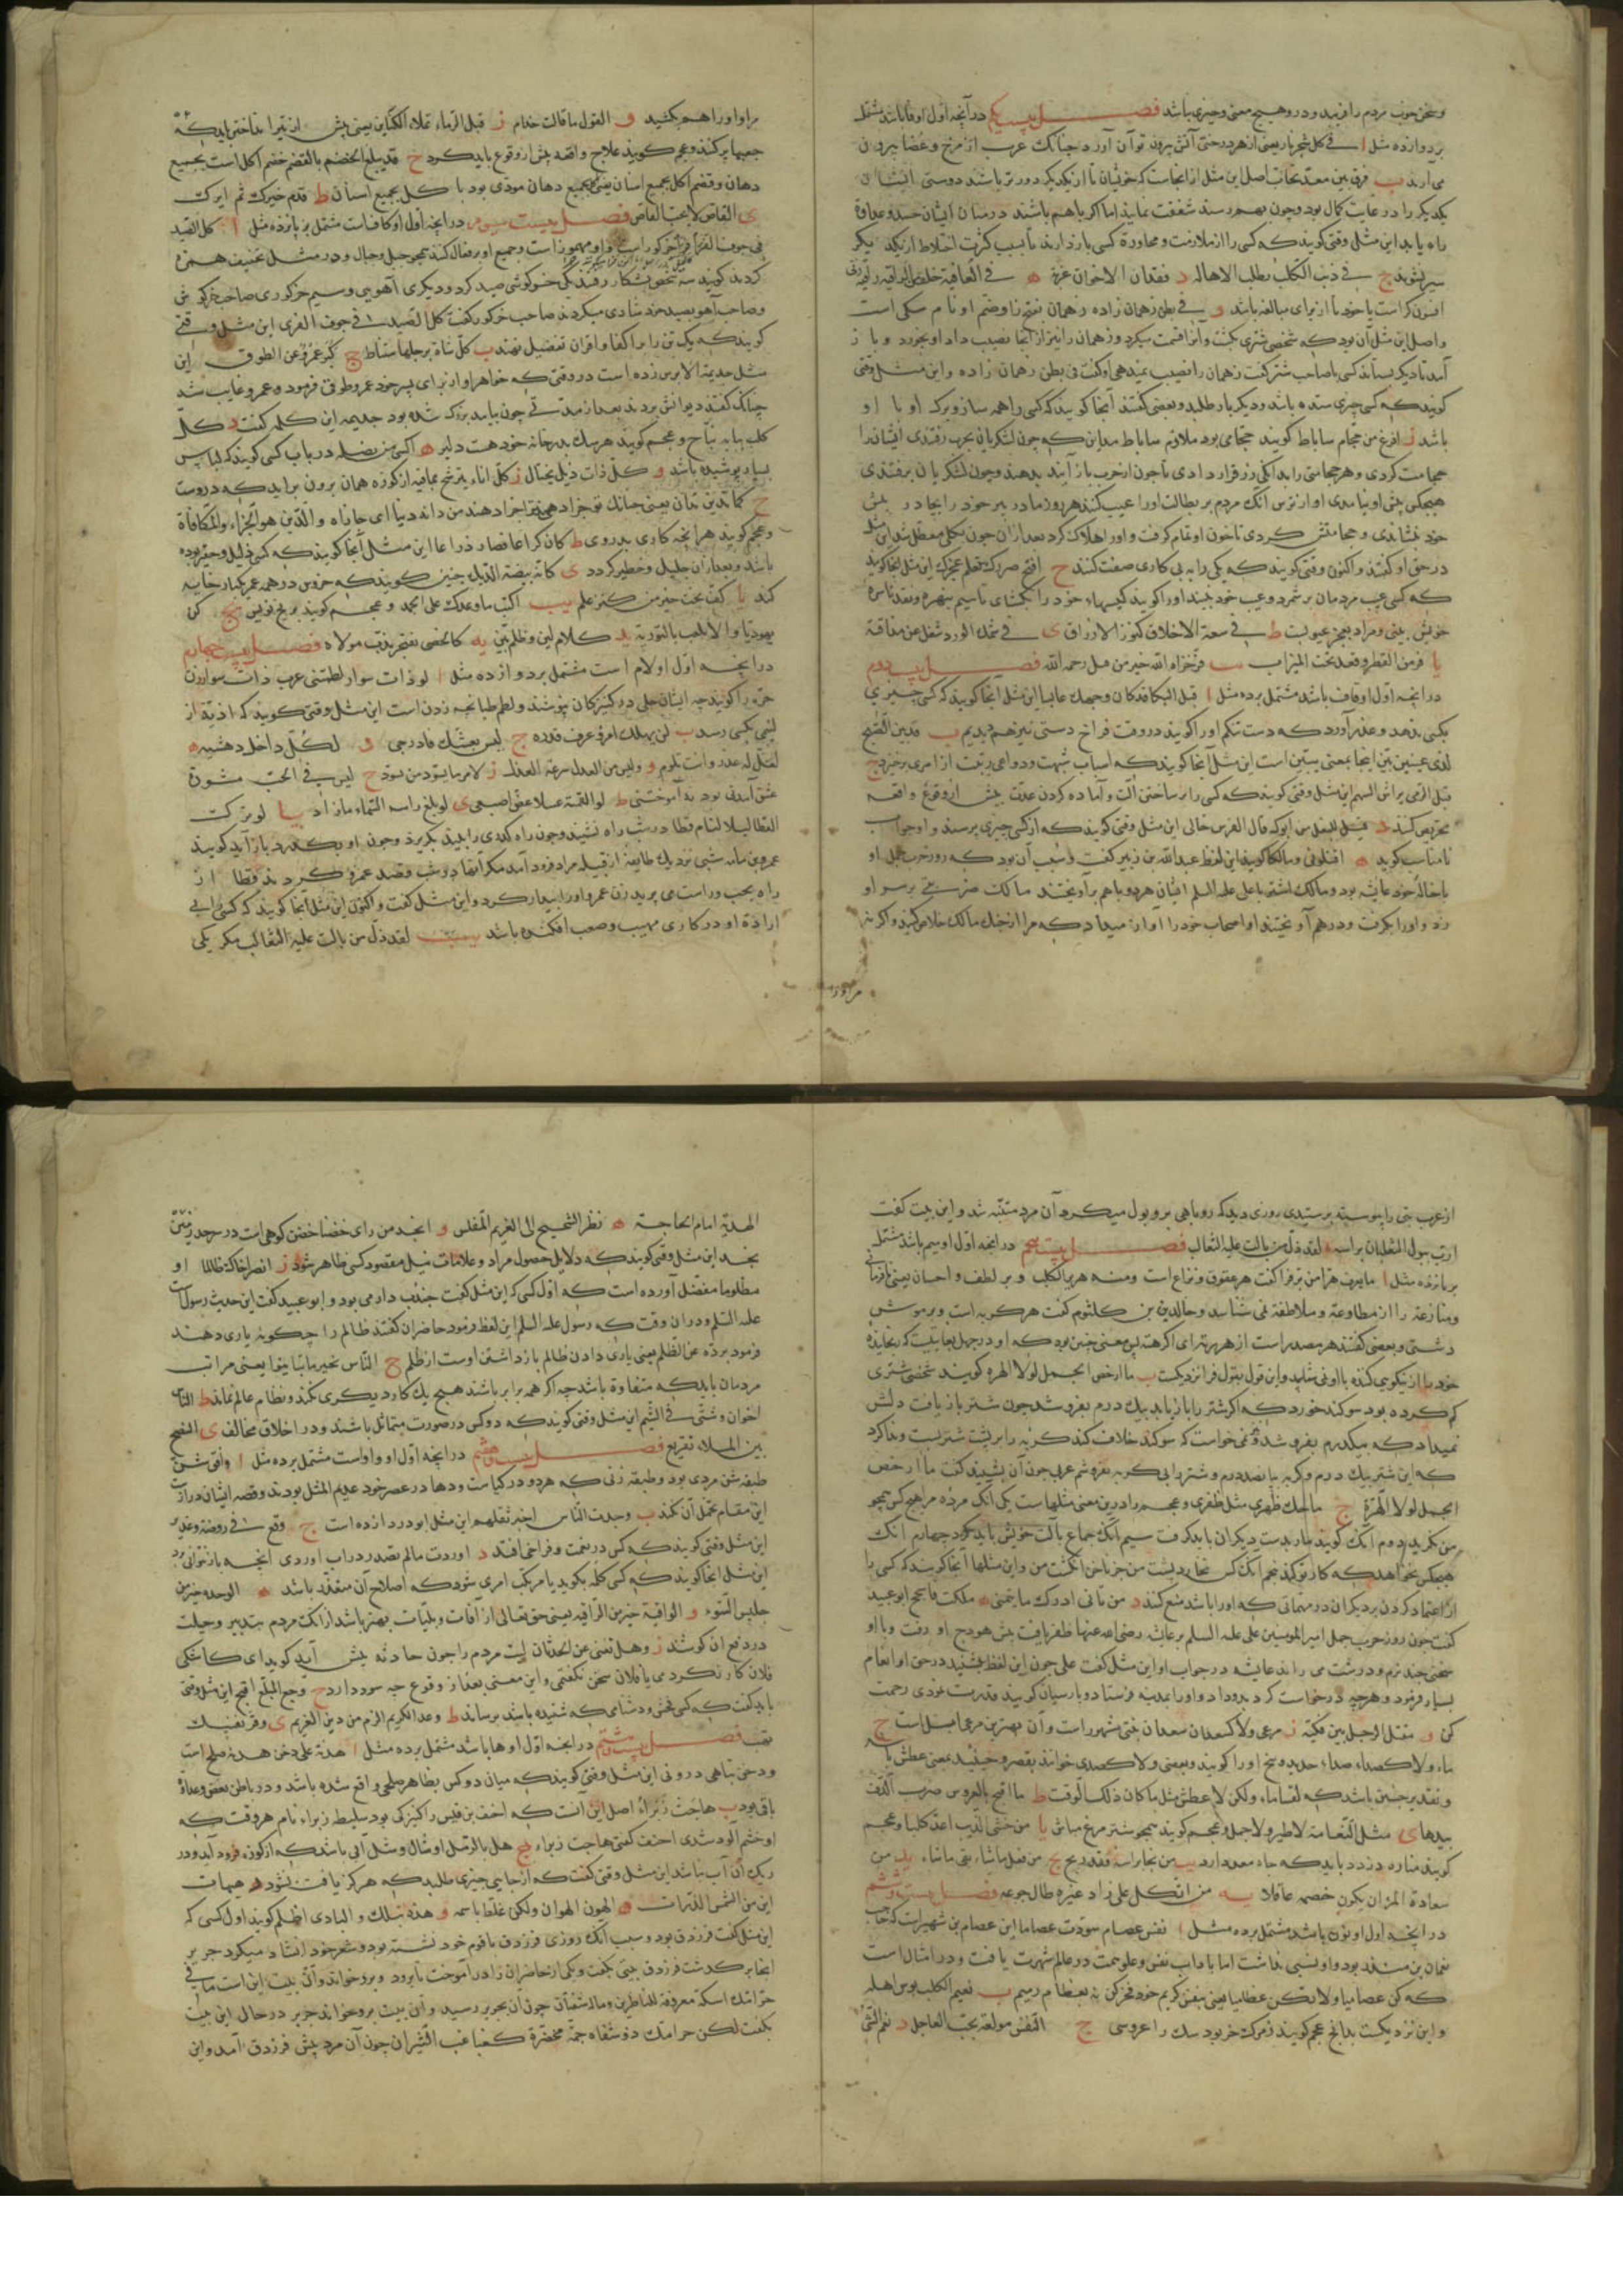 و سخن خوب مردم را فریبد و در و هیچ معنی و چیزی نباشد فصل بیست یکم در آنچه اول او فا باشد مشتمل
بر دوازده مثل ا فی کل شجر نار یعنی از هر درختی آتش برون توان آورد چنانک عرب از مرخ و عفار بیرون
می آرند ب فرق بین معد تحاب اصل این مثل از انجاست که خویشان تا از یکدیگر دور تر باشند دوستی ایشان
یکدیگر را در غایت کمال بود و چون بهم رسند شفقت نمایند اما اگر با هم باشند در میان ایشان حسد و عداوة
راه یابد این مثل وقتی کویند که کسی را از ملازمت و مجاورة کسی باز دارند تا بسبب کثرت اختلاط از یکدیگر
سیر نشوند ج فی ذنب الکلب یطلب الاهاله د فقدان الاخوان غربة ه فی العاقبة
و فی بطن زهمان زاده زهمان بفتح زا و ضم او نام سکی است
و اصل این مثل آن بود که شخصی شتری بکشت و آنرا قسمت میکرد و زهمان را نیز از آنجا نصیب داد او بخورد و باز
آمد تا دیگر بستاند کسی با صاحب شتر کفت زهمان را نصیب نمیدهی او کفت فی بطن زهمان زاده و این مثل وقتی
کویند که کسی چیزی ستده باشد و دیگر بار طلبد و بعضی کفتند آنجا کویند که کسی را همه ساز و برک او با او
باشد ز افرغ من حجام ساباط کویند حجامی بود ملازم ساباط مداین که چون لشکریان بحرب رفتندی ایشانرا
حجامت کردی و هر حجامتی را بدانکی زر قرار دادی تا چون از حرب باز آیند بدهند و چون لشکریان برفتندی
هیچکس پیش او نیامدی او از ترس آنک مردم بر بطالت او را عیب کنند هر روز مادر پیر خود را بیجا در پیش
خود بنشاندی و حجامتش کردی تا خون او تمام کرفت و او را هلاک کرد بعد از آن چون بکلی معطل شد این مثل
در حق او کفتند و اکنون وقتی کویند که یکی را به بی کاری صفت کنند ح افتح صررک تعلم عجرک این مثل آنجا کویند
که کسی عیب مردمان بر شمرد و عیب خود نبیند او را کویند کیسهاء خود را بکشای تا سیم بنهره و نقد ناسره
خویش بینی و مراد بعجر عیوبست ط فی سعة الاخلاق کنوز الارزاق ی فی شمک الورد شغل عن مذاقه
یا فر من القطر و قعد تحت المیزاب یب فر اخزاه الله خیر من قتل رحمه الله فصل بیست دوم
در آنچه اول او قاف باشد مشتمل بر ده مثل ا قبل البکا قد کان وجهک عابسا این مثل آنجا کویند که کسی چیزی
بکسی ندهد و عذر آورد که دست تنکم او را کویند در وقت فراخ دستی نیز هم ندیدیم ب قد بین الصبح
لذی عینین بین اینجا بمعنی تبین است این مثل آنجا کویند که اسباب شبهت و دواعی ریبت از امری برخیزد ج
قبل الرمی یراش السهم این مثل وقتی کویند که کسی را بر ساختن آلت و آماده کردن عدت پیش از وقوع واقعه
تحریص کنند د قیل للبغل من ابوک قال الفرس خالی این مثل وقتی کویند که از کسی چیزی پرسند و او جواب
نامناسب کوید ه اقتلونی و مالکا کویند این لفظ عبدالله بن زبیر کفت و سبب آن بود که روز حرب جمل او
با خاله خود عایشه بود و مالک اشتر با علی علیه السلم ایشان هر دو با هم بر آویختند مالک ضربتی بر سر او
زد و او را بکرفت و در هم آویختند او اصحاب خود را آواز میداد که مرا از جنک مالک خلاص کنید و اکر نه
مرا و را
مرا و او را هم بکشید و القول ما قالت حذام ز قبل الرماء تملاء الکنائن یعنی پیش از تیر انداختن باید که
جعبها پر کنند و عجم کویند علاج واقعه پیش از وقوع باید کرد ح قد یبلغ الخضم بالقضم خضم اکل است بجمیع
دهان و قضم اکل بجمیع اسنان
ی القاص لا یحب القاص فصل بیست سوم در آنچه اول او کافست مشتمل بر پانزده مثل ا کل الصید
فی جوف الفرا
کردند کویند سه شخص بشکار رفتند یکی خرکوشی صید کرد و دیگری آهویی و سیم خرکوری صاحب خرکوش
و صاحب آهو بصید خود شادی میکردند صاحب خرکور کفت کل الصید فی جوف الفری این مثل وقتی
کویند که یک تن را بر اکفا و اقران تفضیل نهند ب کل شاة برجلها ستناط ج کبر عمرو عن الطوق این
مثل جذیمة الابرش زده است در وقتی که خواهر او از برای پسر خود عمرو طوق فرمود و عمرو غایب شد
چنانک کفتند دیوانش بردند بعد از مدتی چون بیامد بزرک شده بود جذیمه این کلمه کفت د کل
کلب ببابه نباح و عجم کویند هر سک بدر خانه خود هست دلیر ه اکسی من بصله در باب کسی کویند که لباس
بسیار پوشیده باشد و کل ذات ذیل تختال ز کل اناء یترشح بما فیه از کوزه همان برون براید که دروست
ح کما تدین تدان یعنی چنانک تو جزا دهی ترا جزا دهند من دانه دینا ای جازاه و الدین هو الجزاء و المکافاة
و عجم کویند هر آنچه کاری بدروی ط کان کراعا فصار ذراعا این مثل آنجا کویند که کسی ذلیل و حقیر بوده
باشد و بعد از آن جلیل و خطیر کردد ی کانه بیضة الدیک چنین کویند که خروس در همه عمر یکبار خایه
کند یا کف بخت خیر من کنز علم یب اکتب ما وعدک علی الجمد و عجم کویند بر یخ نویس یج کن
یهودیا و الا فلا تلعب بالتوریة ید کلام لین و ظلم بین یه کالخصی یفتخر بذنب مولاه فصل بیست چهارم
در آنچه اول او لام است مشتمل بر دوازده مثل ا لو ذات سوار لطمتنی عرب ذات سوار زن
حره را کویند چه ایشان حلی در کنیزکان نپوشند و لطم طبانچه زدن است این مثل وقتی کویند که اذیت از
لئیمی بکسی رسد ب لن یهلک امرؤ عرف قدره ج لیس بعشک فادرجی د لکل داخل دهشة ه
لعل له عذر و انت تلوم و ولیس من العدل سرعة العذل ز لامر ما یسود من یسود ح لیس فی الحب مشورة
عشق آمدنی بود نه آموختنی ط
القطا لیلا لنام قطا در شب راه نشیند و چون راه کند
عمرو بن مامه شبی نزدیک طایفه از قبیله مراد فرود آمد مکر آنها در شب قصد عمرو کردند قطا از
راه بجست و راست می پرید زن عمرو او را بیدار کرد و این مثل کفت و اکنون این مثل آنجا کویند که کسی را بی
ارادة او در کاری مهیب و صعب افکنده باشد یب لقد ذل من بالت علیه الثعالب مکر یکی
از عرب بتی را پیوسته پرستیدی روزی دید که روباهی برو بول میکرد آن مرد متنبه شد و این بیت کفت
ارب یبول الثعلبان براسه لقد ذل من بالت علیه الثعالب فصل بیست پنجم در آنچه اول او میم باشد مشتمل
بر پانزده مثل ا ما یعرف هرا من بر فرا کفت هر عقوق و نزاع است و منه هریر الکلب و بر لطف و احسان یعنی
و منازعة را از مطاوعة و ملاطفة نمی شناسد و خالد بن کلثوم کفت هر کربه است و بر موش
دشتی و بعضی کفتند هر مصدر است از هررته ای کرهته پس معنی چنین بود که او در جهل بغایتیست که
کم کرده بود سوکند خورد که اکر شتر را باز یابد بیک درم بفروشد چون شتر باز یافت دلش
نمیداد که بیکدرم بفروشد و نمی خواست که سوکند خلاف کند کربه را بر پشت شتر بست و ندا کرد
که این شتر بیک درم و کربه بپانصد درم و شتر را بی کربه نفروشم عربی چون آن بشنید کفت ما ارخص
الجمل لولا الهرة ج ما حک ظهری مثل ظفری و عجم را درین معنی مثلهاست یکی آنک مرده مرا هیچ کس همچو
من نکرید دوم آنک کویند مار بدست دیگران باید کرفت سیم آنک جماع بآلت خویش باید کرد چهارم آنک
هیچکس نخواهد که کار تو کند پنجم آنک کس نخارد پشت من جز ناخن انکشت من و این مثلها آنجا کویند که کسی را
از اعتماد کردن بر دیگران در مهماتی که او را باشد منع کنند د من تأنی ادرک ما یتمنی ه ملکت فاسجح ابو عبید
کفت چون روز حرب جمل امیر المومنین علی علیه السلم بر عایشه رضی الله عنها ظفر یافت پیش هودج او رفت و با او
سخنی چند نرم و درشت می راند عایشه در جواب او این مثل کفت علی چون این لفظ بشنید در حق او انعام
بسیار فرمود و هرچه درخواست کرد بدو داد و او را بمدینه فرستاد و پارسیان کویند قدرت نمودی رحمت
کن و مقتل الرجل بین فکیه ز مرعی و لا کسعدان سعدان نبتی مشهور است و آن بهترین مرعی ابل است ح
ماء و لا کصداء
ط ما اقبح بالعروس ضرب الدف
بیدها ی مثل النعامة لا طیر و لا جمل و عجم کویند همچو شتر مرغ مباش یا من خشی الذیب اعد کلبا و عجم
کویند مناره دزدد باید که چاه معد دارد یب من نجا براسه فقد ربح یج من فعل ما شاء لقی ما شاء ید من
سعادة المرء ان یکون خصمه عاقلا یه من اتکل علی زاد غیره طال جوعه فصل بیست و ششم
در آنچه اول او نون باشد مشتمل بر ده مثل ا نفس عصام سودت عصاما این عصام بن شهبرست که حاجب
نعمان بن منذر بود و او نسبی نداشت اما باداب نفس و علو همت در عالم شهرت یافت و در امثال است
که کن عصامیا و لا تکن عظامیا یعنی بنفس کریم خود فخر کن نه بعظام رمیم ب نعیم الکلب بوس اهله
و این نزدیکست بدانچ عجم کویند ز مرک خر بود سک را عروسی ج النفس مولعة بحب العاجل د نعم الشئ
الهدیة امام الحاجة ه نظر الشحیح الی الغریم المفلس و انجد من رای حضنا حضن کوهی است در سرحد زمین
نجد این مثل وقتی کویند که دلایل حصول مراد و علامات نیل مقصود کسی ظاهر شود ز انصر اخاک ظالما او
مظلوما مفضل آورده است که اول کسی که این مثل کفت جندب دارمی بود و ابو عبید کفت این حدیث رسول است
علیه السلم و در آن وقت که رسول علیه السلم این لفظ فرمود حاضران کفتند ظالم را چکونه یاری دهند
فرمود برده عن الظلم یعنی یاری دادن ظالم باز داشتن اوست از ظلم ح الناس بخیر ما تباینوا یعنی مراتب
مردمان باید که متفاوة باشد چه اکر همه برابر باشند هیچ یک کار دیگری نکند و نظام عالم نماند ط الناس
اخوان و شتی فی الشیم این مثل وقتی کویند که دو کس در صورت متماثل باشند و در اخلاق مخالف ی النصح
بین الملاء تقریع فصل بیست هفتم در آنچه اول او واو است مشتمل بر ده مثل ا وافق شن
طبقة شن مردی بود و طبقة زنی که هر دو در کیاست و دها در عصر خود عدیم المثل بودند و قصه ایشان درازست
این مقام تحمل آن نکند ب وجدت الناس اخبر تقلهم این مثل ابو دردا زده است ج وقع فی روضة و غدیر
این مثل وقتی کویند که کسی در نعمت و فراخی افتد د اوردت ما لم تصدر در آب آوردی آنچه باز نتوانی برد
این مثل آنجا کویند که کسی کلمه بکوید یا مرتکب امری شود که اصلاح آن متعذر باشد ه الوحدة خیر من
جلیس السوء و الواقیة خیر من الراقیة یعنی حق تعالی از آفات و بلیات بهتر باشد از آنک مردم بتدبیر و حیلت
در دفع آن کوشند ز و هل تغنی عن الحدثان لیت مردم را چون حادثه پیش آید کوید ای کاشکی
فلان کار نکردمی یا فلان سخن نکفتمی و این معنی بعد از وقوع چه سود دارد ح
باید کفت که کسی فحش و دشنامی که شنیده باشد برساند ط وعد الکریم الزم من دین الغریم ی
فصل بیست و هشتم در آنچه اول او ها باشد مشتمل بر ده مثل ا هدنة علی دخن هدنه صلح است
و دخن تباهی درونی این مثل وقتی کویند که میان دو کس بظاهر صلحی واقع شده باشد و در باطن بغض و عداوة
باقی بود ب هاجت زبراء اصل این آنست که احنف بن قیس را کنیزکی بود سلیطه زبراء نام هر وقت که
او خشم آلود شدی احنف کفتی هاجت زبراء ج هل بالرمل اوشال وشل آبی باشد که از کوه فرود آید و در
ریک آن آب نباشد این مثل وقتی کفت که از جایی چیزی طلبد که هرگز یافت نشود د هیهات
این من الشمس الذرات ه الهون الهوان ولکن غلط باسمه و هذه بتلک و البادی اظلم کویند اول کسی که
این مثل کفت فرزدق بود و سبب آنک روزی فرزدق با قوم خود نشسته بود و شعر خود انشاد میکرد جریر
آنجا بر کذشت فرزدق بیتی بکفت و یکی از حاضران را در آموخت تا برود و برو خواند و آن بیت این است ما فی
چون آن بجریر رسید و این بیت برو خواند جریر در حال این بیت
بکفت
چون آن مرد پیش فرزدق آمد و این